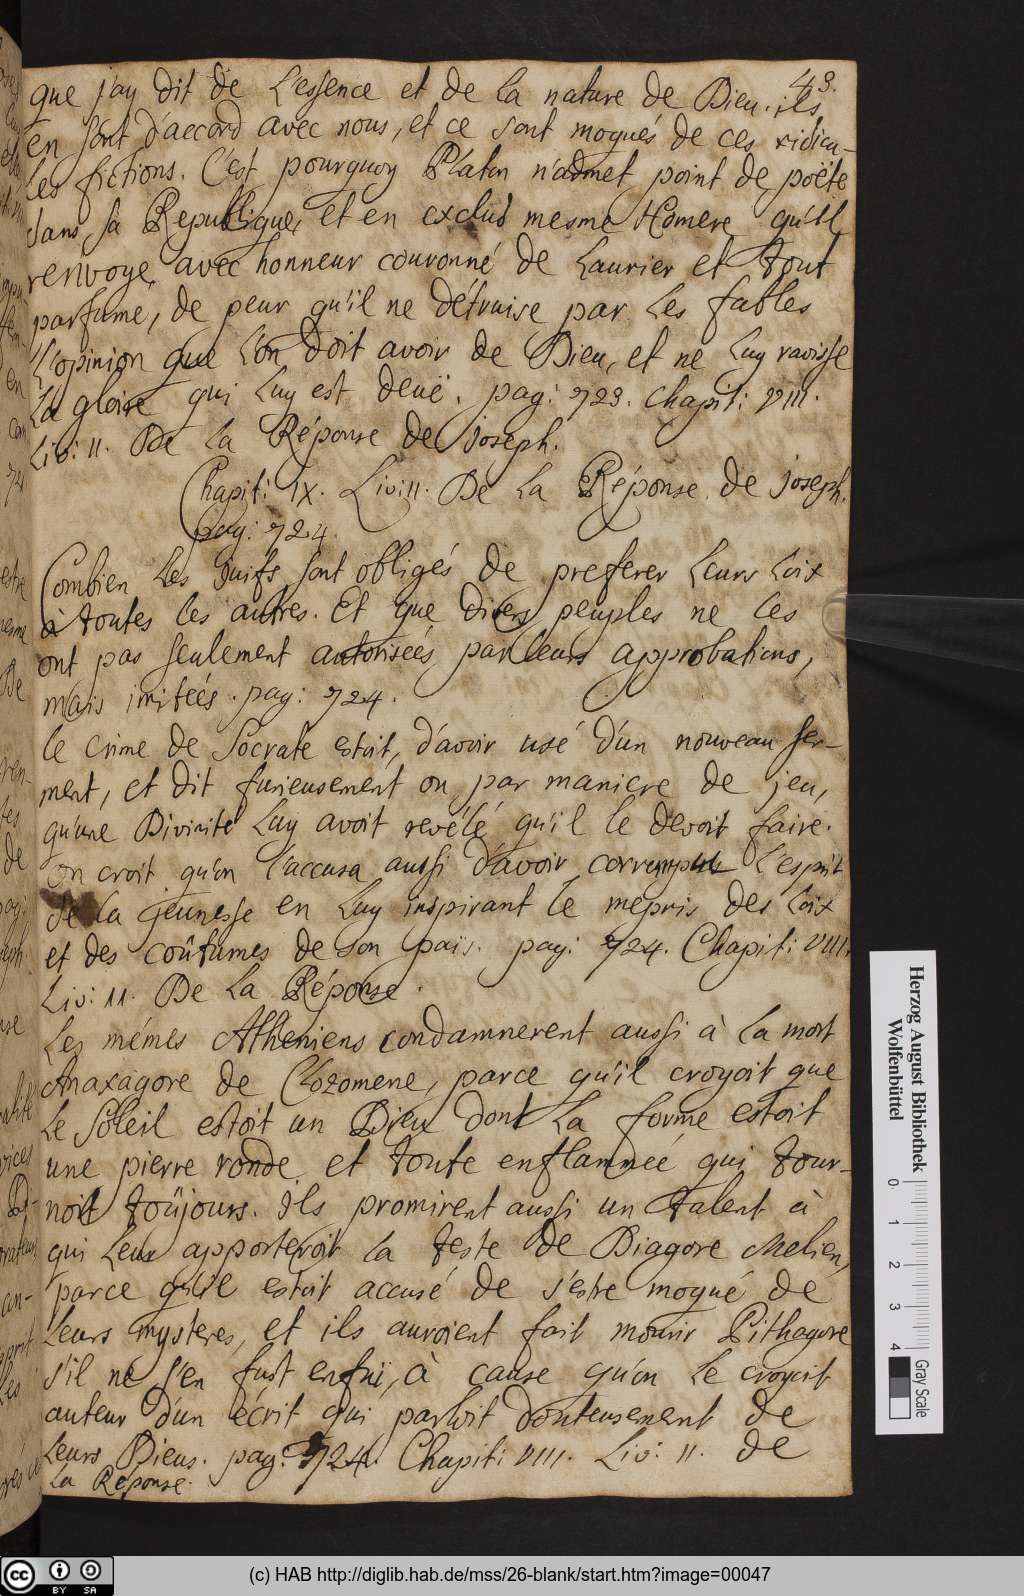 43.
que j'ay dit de L'essence et de la nature de Dieu. ils
en sont d'accord avec nous, et ce sont moqués de ces ridicu-
les fictions. C'est pourquoy Platon n'admet point de poëte
dans sa Republique, et en exclud mesme Homere qu'il
renvoye avec honneur couronné de Laurier et tout
parfume, de peur qu'il ne détruise par les fables
L'opinion que L'on doit avoir de Dieu, et ne Luy ravisse
La gloire qui Luy est deuë. pag: 723. Chapit: VIII.
Liv: II. De la Réponse de joseph.
Chapit: IX. Liv: II. De La Réponse de joseph.
pag: 724.
Combien Les Juifs sont obligés de preferer Leurs Loix
à toutes les autres. Et que divers peuples ne les
ont pas seulement autorisées par leurs approbations,
mais imiteés. pag: 724.
le crime de Socrate estoit, d'avoir usé d'un nouveau ser-
ment, et dit furieusement ou par maniere de jeu,
qu'une Divinité Luy avoit revélé qu'il le devoit faire.
on croit qu'on l'accusa aussi d'avoir corrumpu L'esprit
de la jeunesse en Luy inspirant le mepris des Loix
et des coûtumes de son païs. pag: 724. Chapit: VIII.
Liv: II. De La Réponse.
Les mémes Atheniens condamnerent aussi à la mort
Anaxagore de Clozomene, parce qu'il croyoit que
Le Soleil estoit un Dieu dont La forme estoit
une pierre ronde et toute enflammée qui tour-
noit toûjours. ils promirent aussi un talent à
qui Leur apporteroit la teste de Diagore Melien,
parce qu'il estoit accusé de s'estre moqué de
Leurs mysteres, et ils auroient fait mourir Pithagore
s'il ne s'en fust enfui, à cause qu'on le croyoit
auteur d'un écrit qui parloit douteusement de
Leurs Dieus. pag: 724. Chapit: VIII. Liv: II. de
La Réponse.
Herzog August Bibliothek
Wolfenbüttel
0 1 2 3 4
Gray Scale
cc BY SA
(c) HAB http://diglib.hab.de/mss/26-blank/start.htm?image=00047